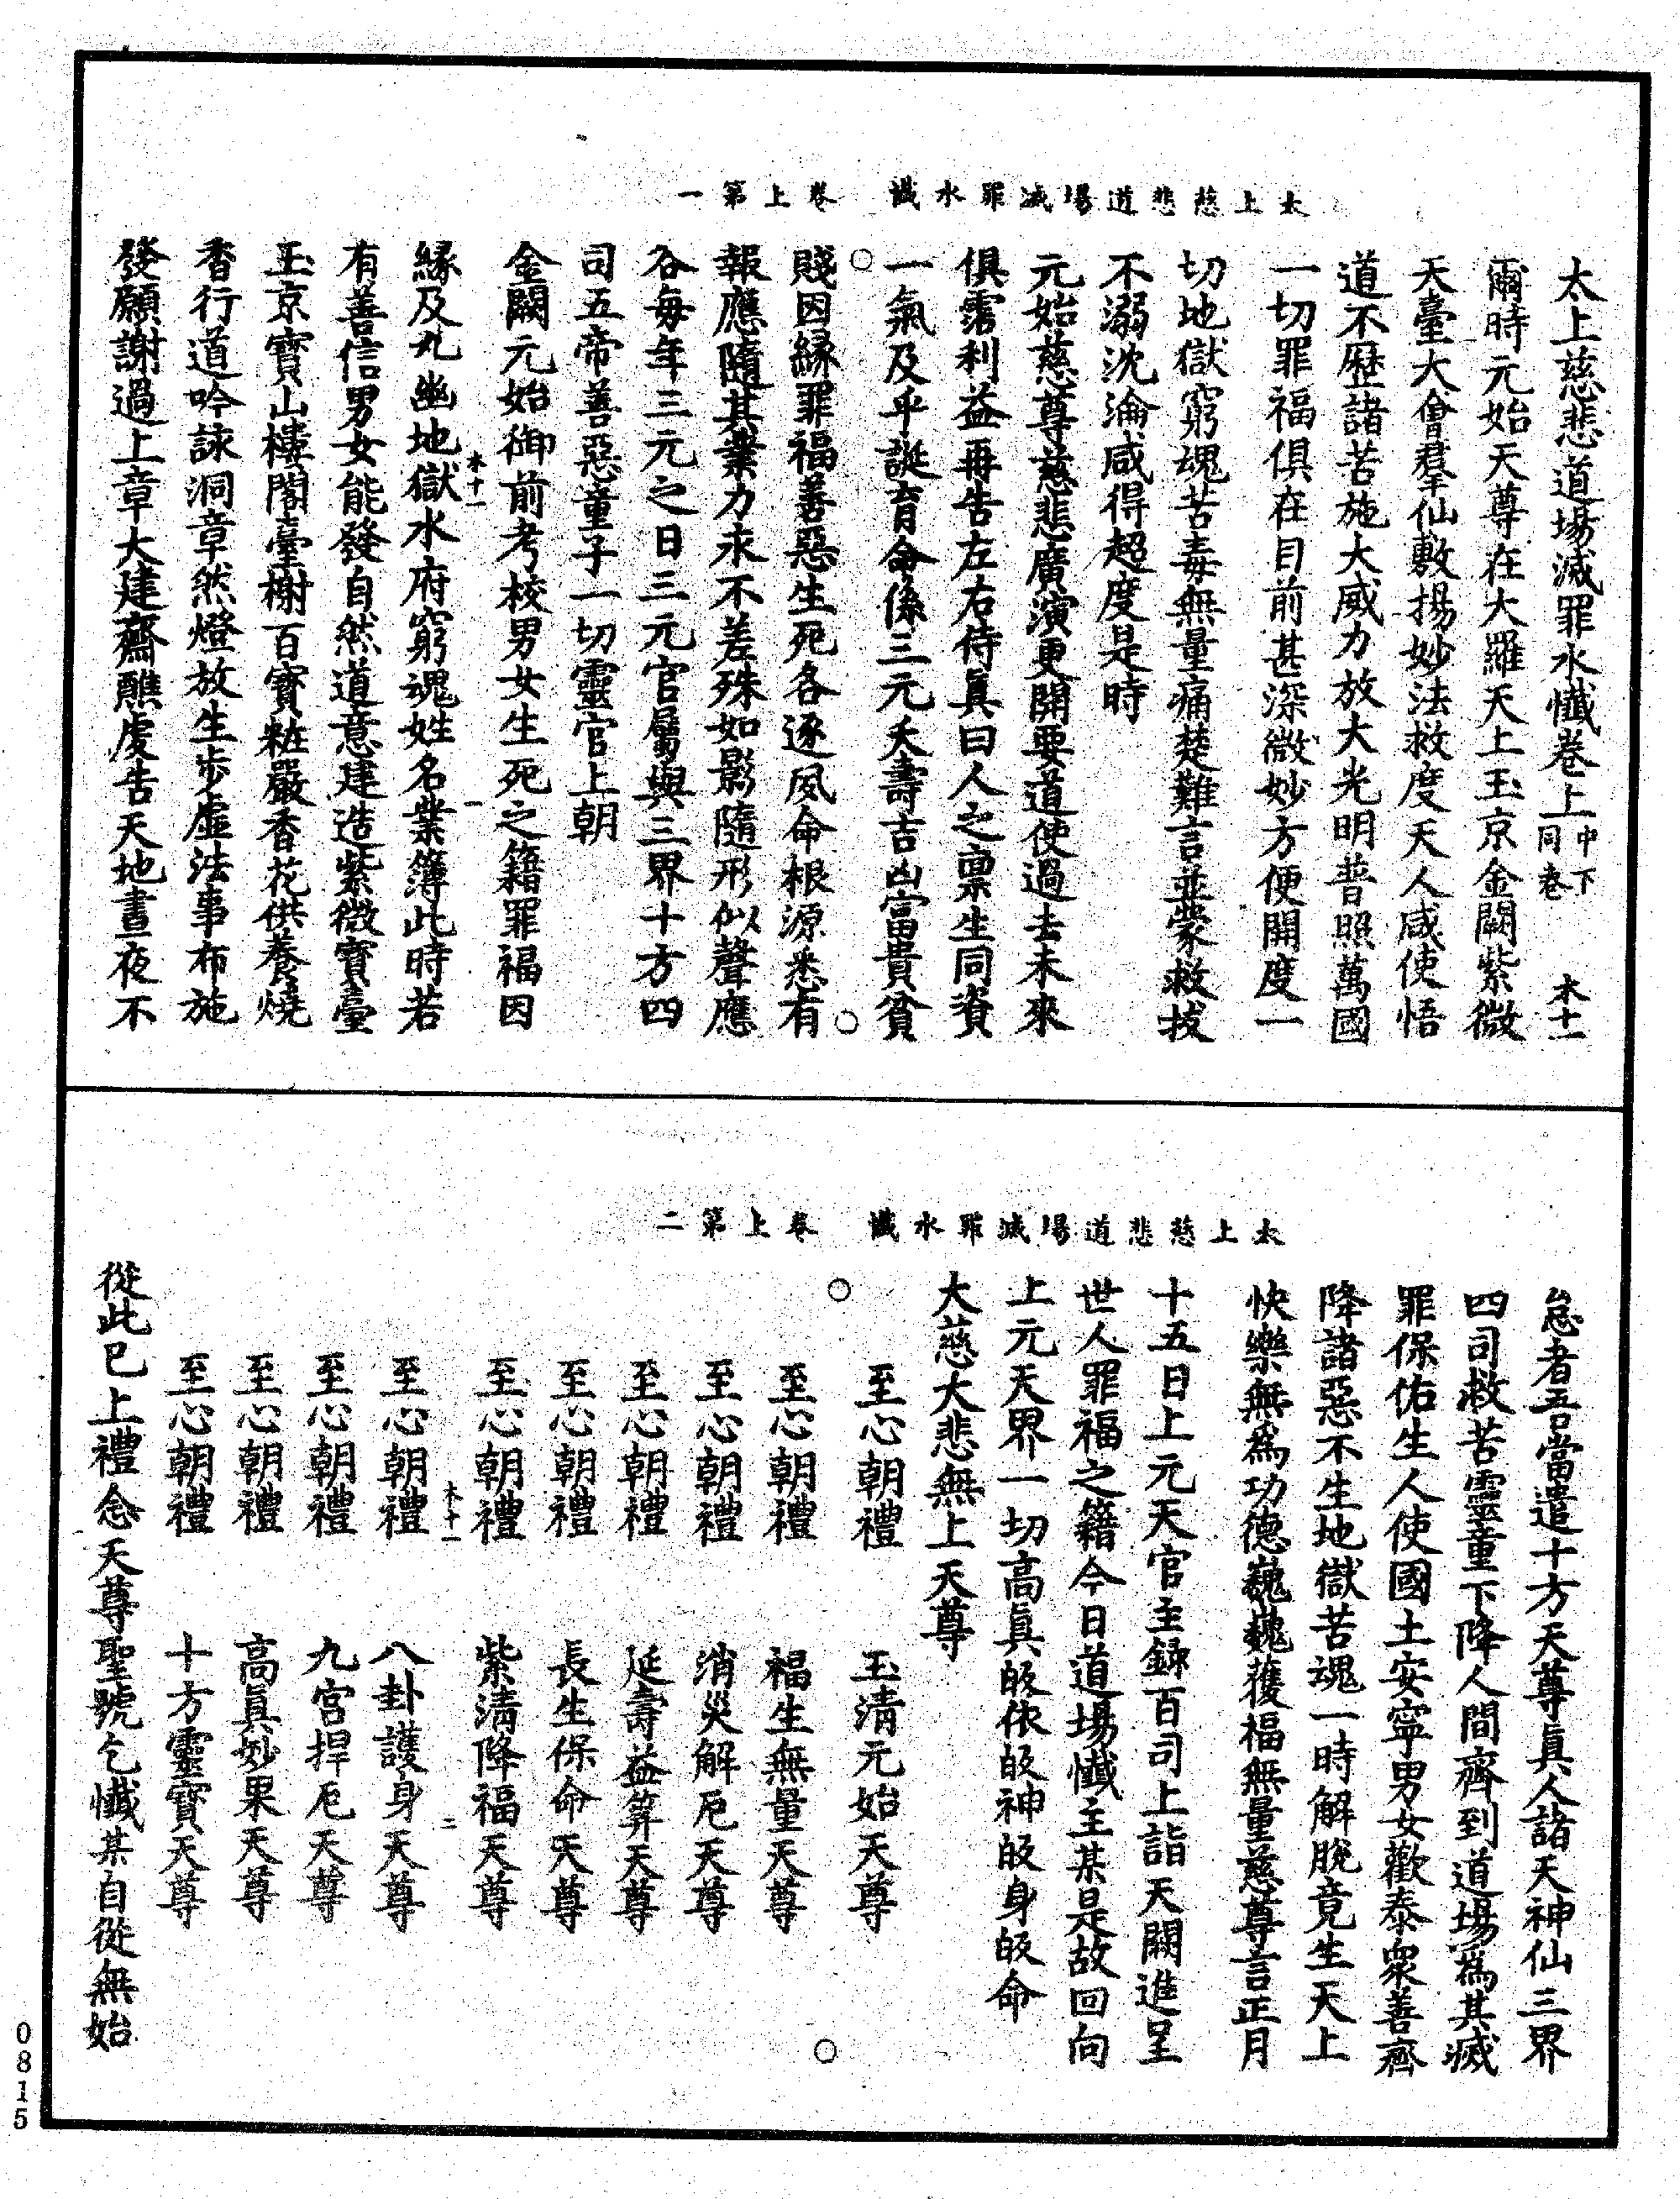 太上慈悲道場滅罪水懺　卷上第一
太上慈悲道場滅罪水懺卷上中下同卷　木十一
爾時元始天尊在大羅天上玉京金闕紫微
天臺大會羣仙敷揚妙法救度天人咸使悟
道不歷諸苦施大威力放大光明普照萬國
一切罪福俱在目前甚深微妙方便開度一
切地獄窮魂苦毒無量痛楚難言並蒙救拔
不溺沈淪咸得超度是時
元始慈尊慈悲廣演更開要道使過去未來
俱霑利益再告左右侍眞曰人之稟生同資
一氣及乎誕育命係三元夭壽吉凶富貴貧
賤因緣罪福善惡生死各逐夙命根源悉有
報應隨其業力求不差殊如影隨形似聲應
谷每年三元之日三元官屬與三界十方四
司五帝善惡童子一切靈官上朝
金闕元始御前考校男女生死之籍罪福因
木十一　一
緣及九幽地獄水府窮魂姓名業簿此時若
有善信男女能發自然道意建造紫微寶臺
玉京寶山樓閣臺榭百寶粧嚴香花供養燒
香行道吟詠洞章然燈放生步虛法事布施
發願謝過上章大建齋醮虔告天地晝夜不
太上慈悲道場滅罪水懺　卷上第二
怠者吾當遣十方天尊眞人諸天神仙三界
四司救苦靈童下降人間齊到道場爲其滅
罪保佑生人使國土安寧男女歡泰衆善齊
降諸惡不生地獄苦魂一時解脫竟生天上
快樂無爲功德巍巍獲福無量慈尊言正月
十五日上元天官主錄百司上詣天闕進呈
世人罪福之籍今日道場懺主某是故回向
上元天界一切高眞皈依皈神皈身皈命
大慈大悲無上天尊
至心朝禮　玉清元始天尊
至心朝禮　福生無量天尊
至心朝禮　消災解厄天尊
至心朝禮　延壽益筭天尊
至心朝禮　長生保命天尊
至心朝禮　紫清降福天尊
木十一　二
至心朝禮　八卦護身天尊
至心朝禮　九宮捍厄天尊
至心朝禮　高眞妙果天尊
至心朝禮　十方靈寶天尊
從此已上禮念天尊聖號乞懺某自從無始
0815